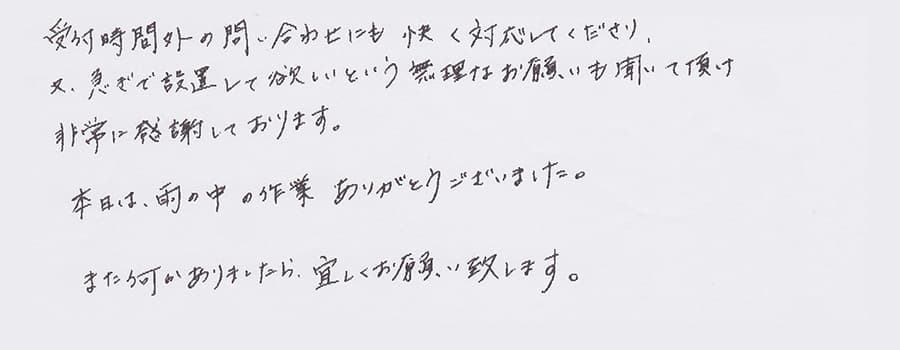 受付時間外の問い合わせにも快く対応してくださり、
又、急ぎで設置して欲しいという無理なお願いも聞いて頂け
非常に感謝しております。
本日は、雨の中の作業ありがとうございました。
また何かありましたら、宜しくお願い致します。